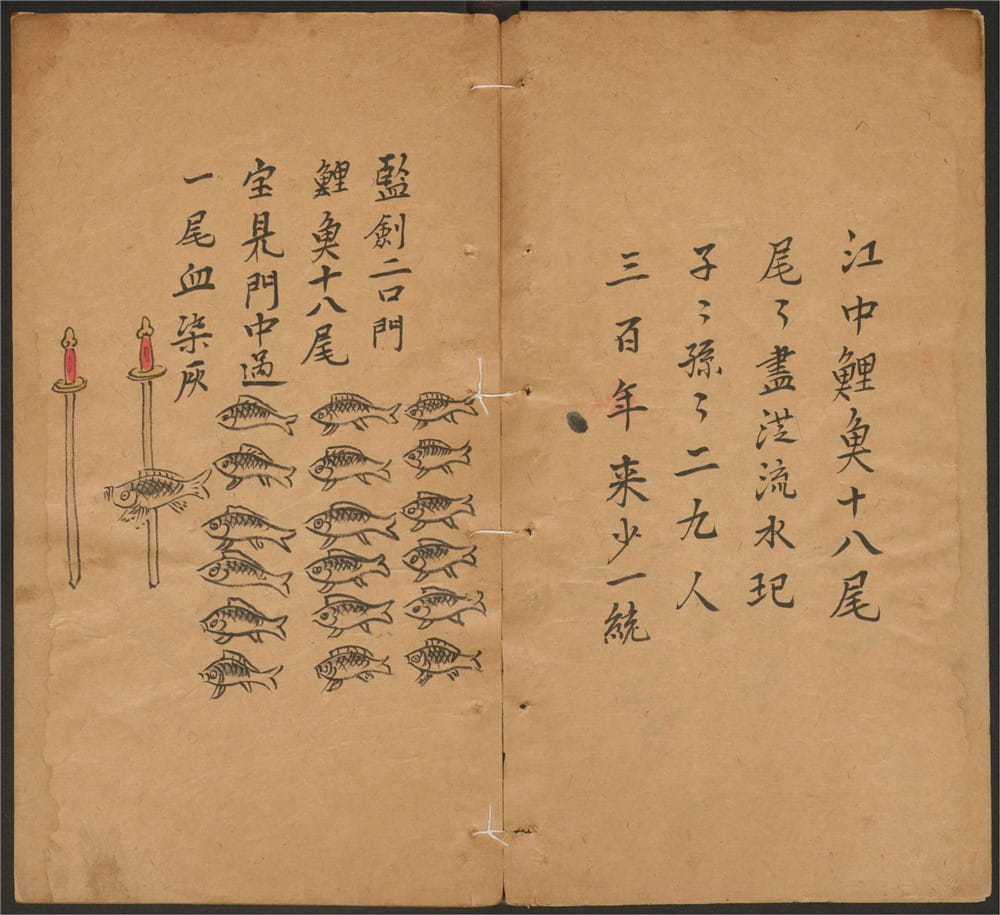 江中鯉魚十八尾
尾々盡洪流水玘
子々孫々二九人
三百年来少一統
監劍二口門
鯉魚十八尾
宝見門中過
一尾血柒灰